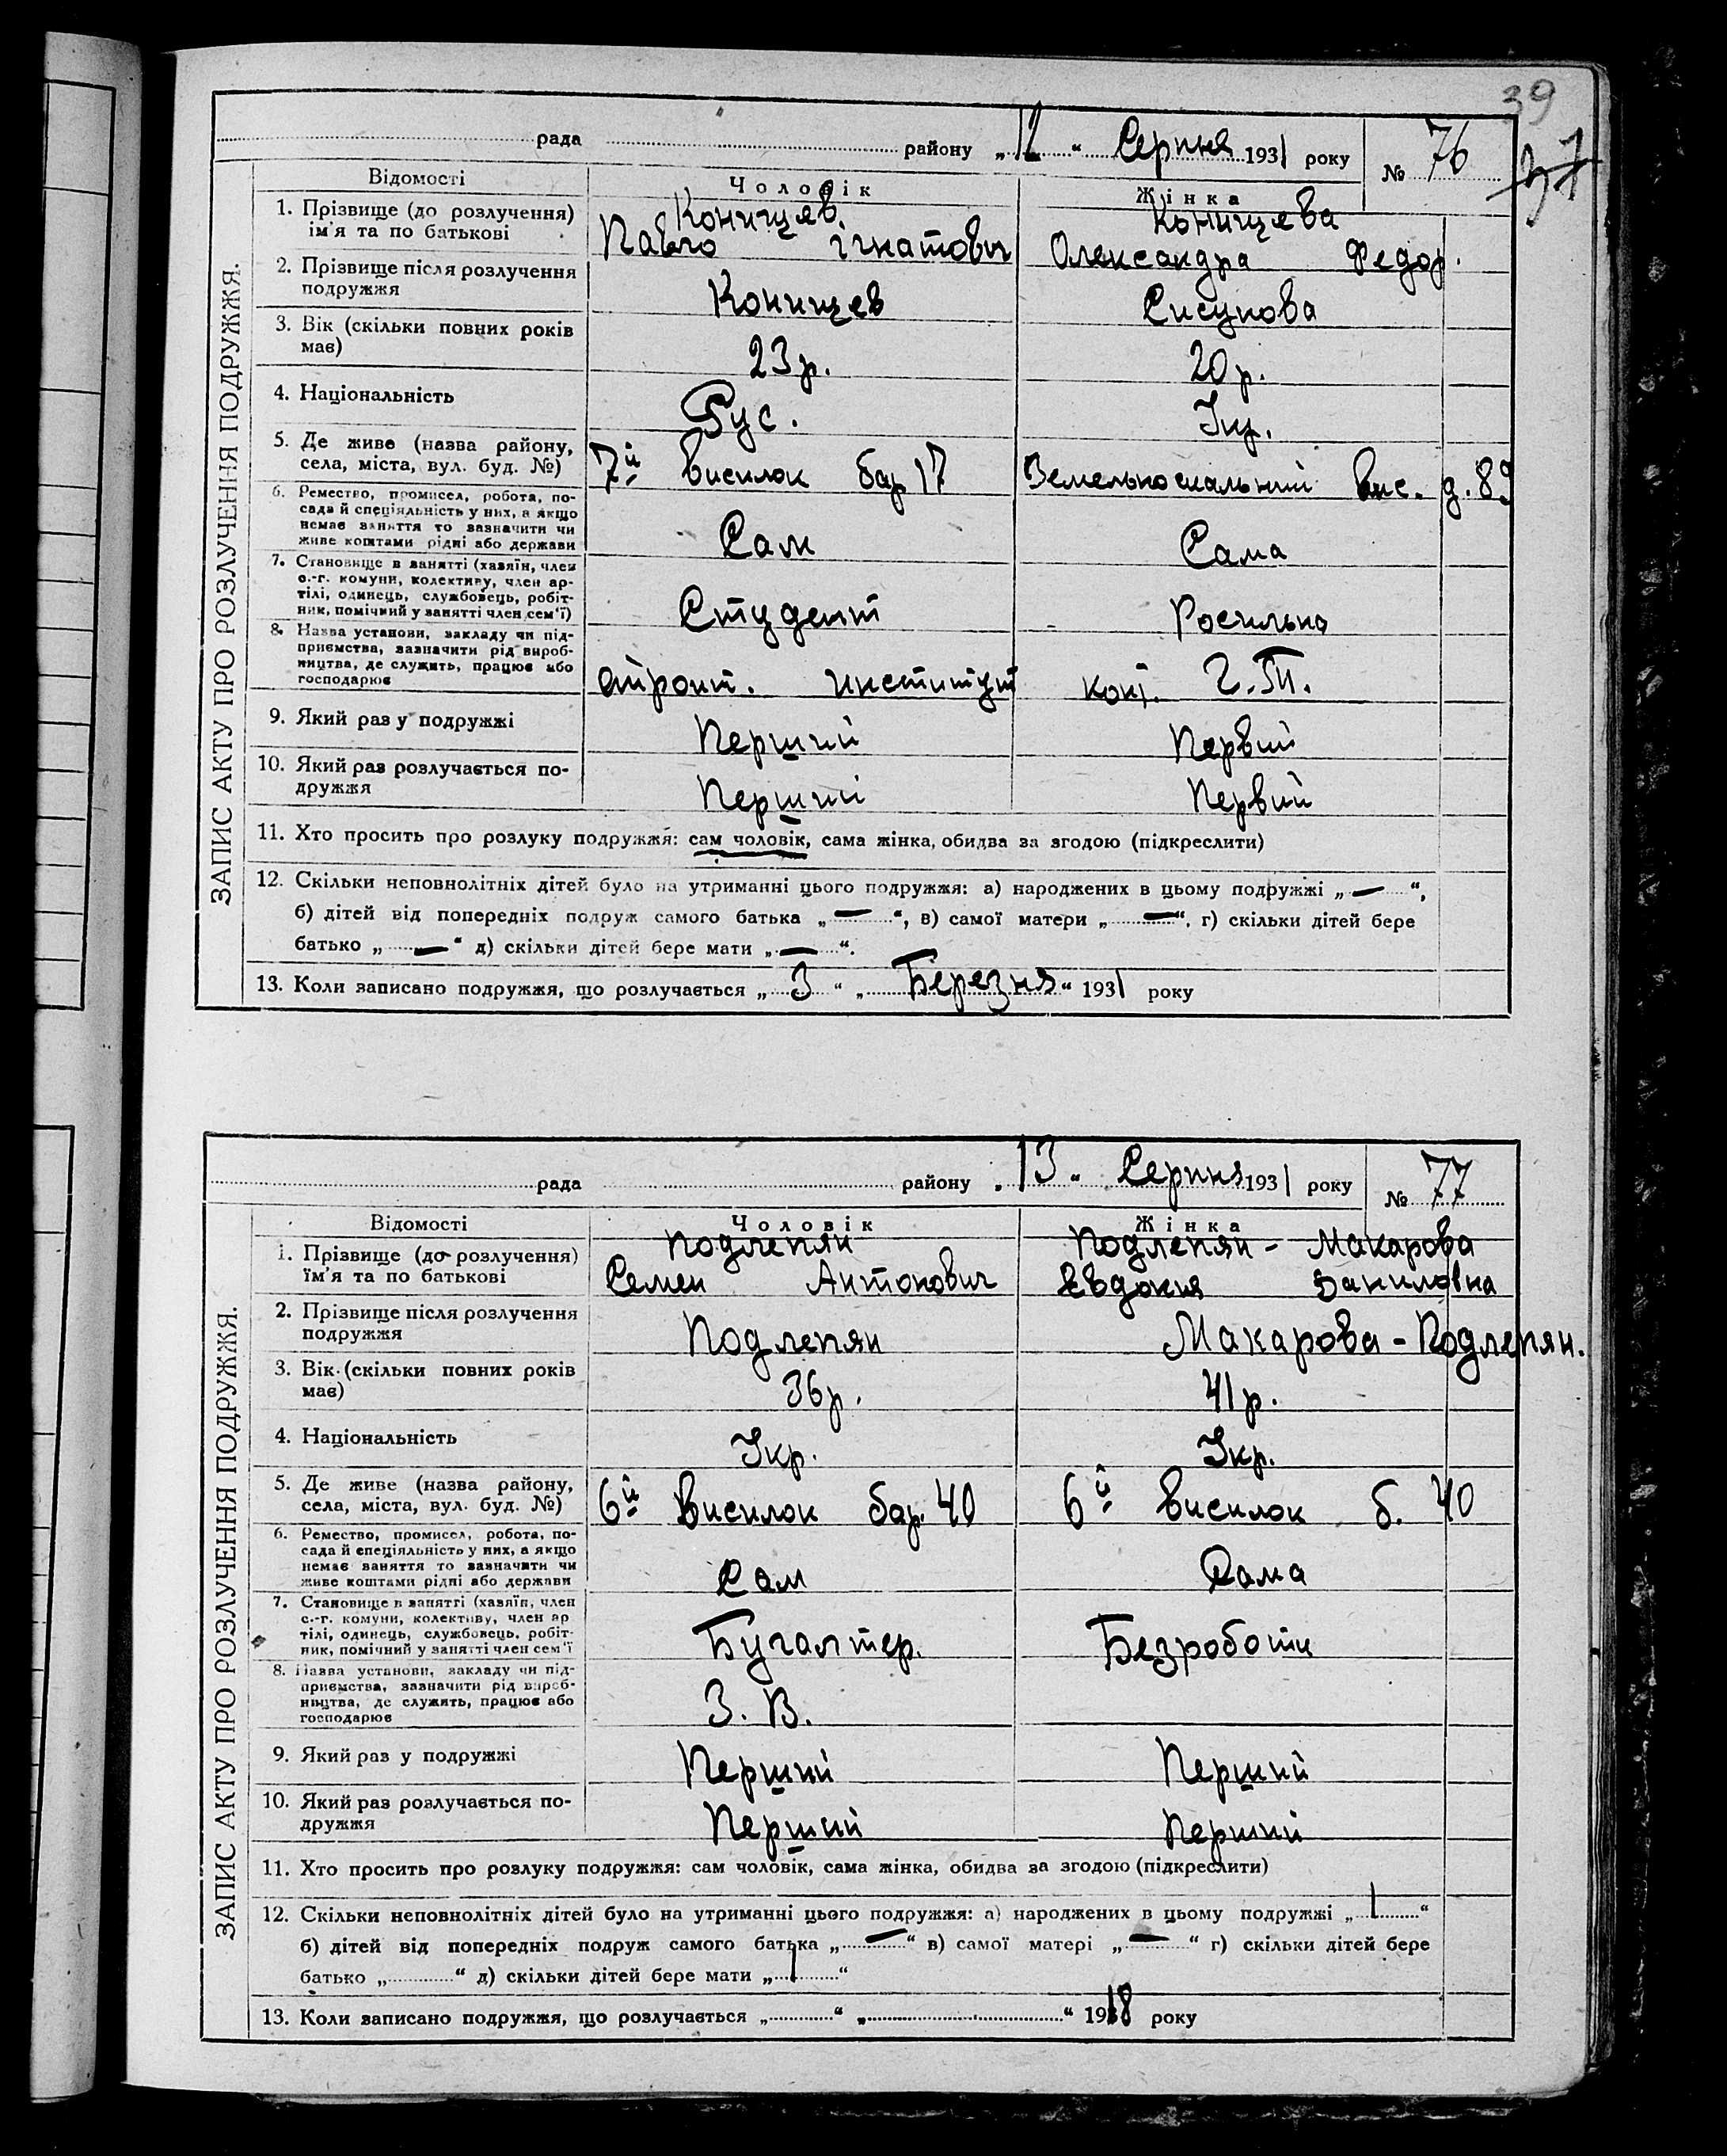 39
рада району „12" Серпня 1931 року № 76
37
ЗАПИС АКТУ ПРО РОЗЛУЧЕННЯ ПОДРУЖЖЯ.
Відомості Чоловік Жінка
1. Прізвище (до розлучення) Конищев Конищева
ім'я та по батькові Павло ігнатович Олександра Федор.
2. Прізвище після розлучення
подружжя Конищев Сисунова
3. Вік (скільки повних років
має) 23 р. 20 р.
4. Національність Рус. Ікр.
5. Де живе (назва району,
села, міста, вул. буд. №) 7й висилок бар 17 вис. д. 89
6. Ремество, промисел, робота, по-
сада й спеціяльність у них, а якщо
немає заняття то зазначити чи
живе коштами рідні або держави Сам Сама
7. Становище в занятті (хазяїн, член
с.-г. комуни, колективу, член ар-
тілі, одинець, службовець, робіт-
ник, помічний у занятті член сем'ї) Студент Росильна
8. Назва установи, закладу чи під-
приємства, зазначити рід вироб-
ництва, де служить, працює або
господарює институт
9. Який раз у подружжі Перший Первий
10. Який раз розлучається по-
дружжя Перший Первий
11. Хто просить про розлуку подружжя: сам чоловік, сама жінка, обидва за згодою (підкреслити)
12. Скільки неповнолітніх дітей було на утриманні цього подружжя: а) народжених в цьому подружжі „—",
б) дітей від попередніх подруж самого батька „—", в) самої матери „—". г) скільки дітей бере
батько „—" д) скільки дітей бере мати „—".
13. Коли записано подружжя, що розлучається „3" „Березня" 1931 року
рада району „13" Серпня 1931 року № 77
ЗАПИС АКТУ ПРО РОЗЛУЧЕННЯ ПОДРУЖЖЯ.
Відомості Чоловік Жінка
1. Прізвище (до розлучення) Подлепян Подлепян - Макарова
ім'я та по батькові Семен Антонович Евдокия Даниловна
2. Прізвище після розлучення
подружжя Подлепян Макарова - Подлепян.
3. Вік (скільки повних років
має) 36 р. 41 р.
4. Національність Ікр. Ікр.
5. Де живе (назва району,
села, міста, вул. буд. №) 6й висилок бар. 40 6й висилок б. 40
6. Ремество, промисел, робота, по-
сада й спеціяльність у них, а якщо
немає заняття то зазначити чи
живе коштами рідні або держави Сам Сама
7. Становище в занятті (хазяїн, член
с.-г. комуни, колективу, член ар
тілі, одинець, службовець, робіт-
ник, помічний у занятті член сем'ї Бугалтер. Безроботн
8. Назва установи, закладу чи під-
приємства, зазначити рід вироб-
ництва, де служить, працює або
господарює З. В.
9. Який раз у подружжі Перший Перший
10. Який раз розлучається по-
дружжя Перший Перший
11. Хто просить про розлуку подружжя: сам чоловік, сама жінка, обидва за згодою (підкреслити)
12. Скільки неповнолітніх дітей було на утриманні цього подружжя: а) народжених в цьому подружжі „1"
б) дітей від попередніх подруж самого батька „—" в) самої матері „—" г) скільки дітей бере
батько „" д) скільки дітей бере мати „1"
13. Коли записано подружжя, що розлучається „" „" 1918 року